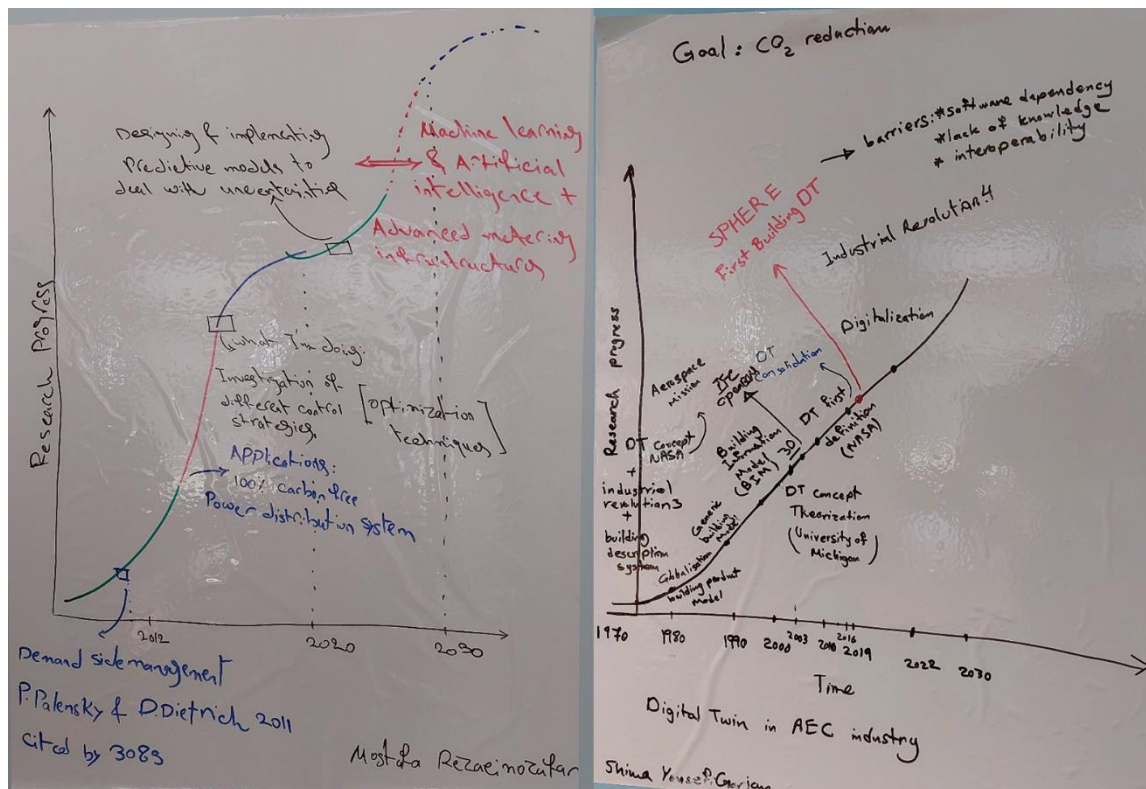 Designing & implementing
Predictive models to
deal with uncertainties
Machine learning
& Artificial
intelligence +
Advanced metering
infrastructures
Research Progress
what I'm doing:
Investigation of
different control
strategies
[optimization
techniques]
APPlications:
100% carbon free
Power distribution system
2012
2020
2030
Demand side management
P. Palensky & D. Dietrich 2011
cited by 3089
Mostafa
Goal: CO2 reduction
barriers: *software dependency
*lack of knowledge
* interoperability
SPHERE
First Building DT
Industrial Revolution 4
Digitalization
Research progress
Aerospace
mission
DT Concept
NASA
+
industrial
revolution 3
+
building
description
system
IFC
DT
Consolidation
Building
Information
Model
(BIM)
3D
DT first
definition
(NASA)
Generic
building
Model
Globalisation
building product
Model
DT concept
Theorization
(University of
Michigan)
1970
1980
1990
2000
2003
2010
2016
2019
2022
2030
Time
Digital Twin in AEC industry
Shima